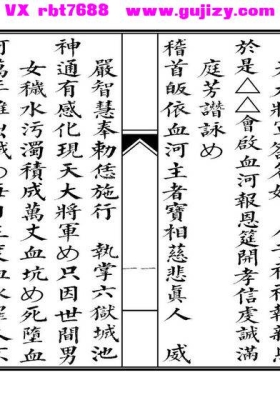 VX rbt7688 www.gujizy.com
於是△△會啟血河報恩筵開孝信虔誠滿
庭芳諧詠め
稽首皈依血河主者寶相慈悲眞人 威
嚴智慧奉勅恁施行 執掌六獄城池
神通有感化現天大將軍め只因世間男
女穢水污濁積成萬丈血坑め死墮血